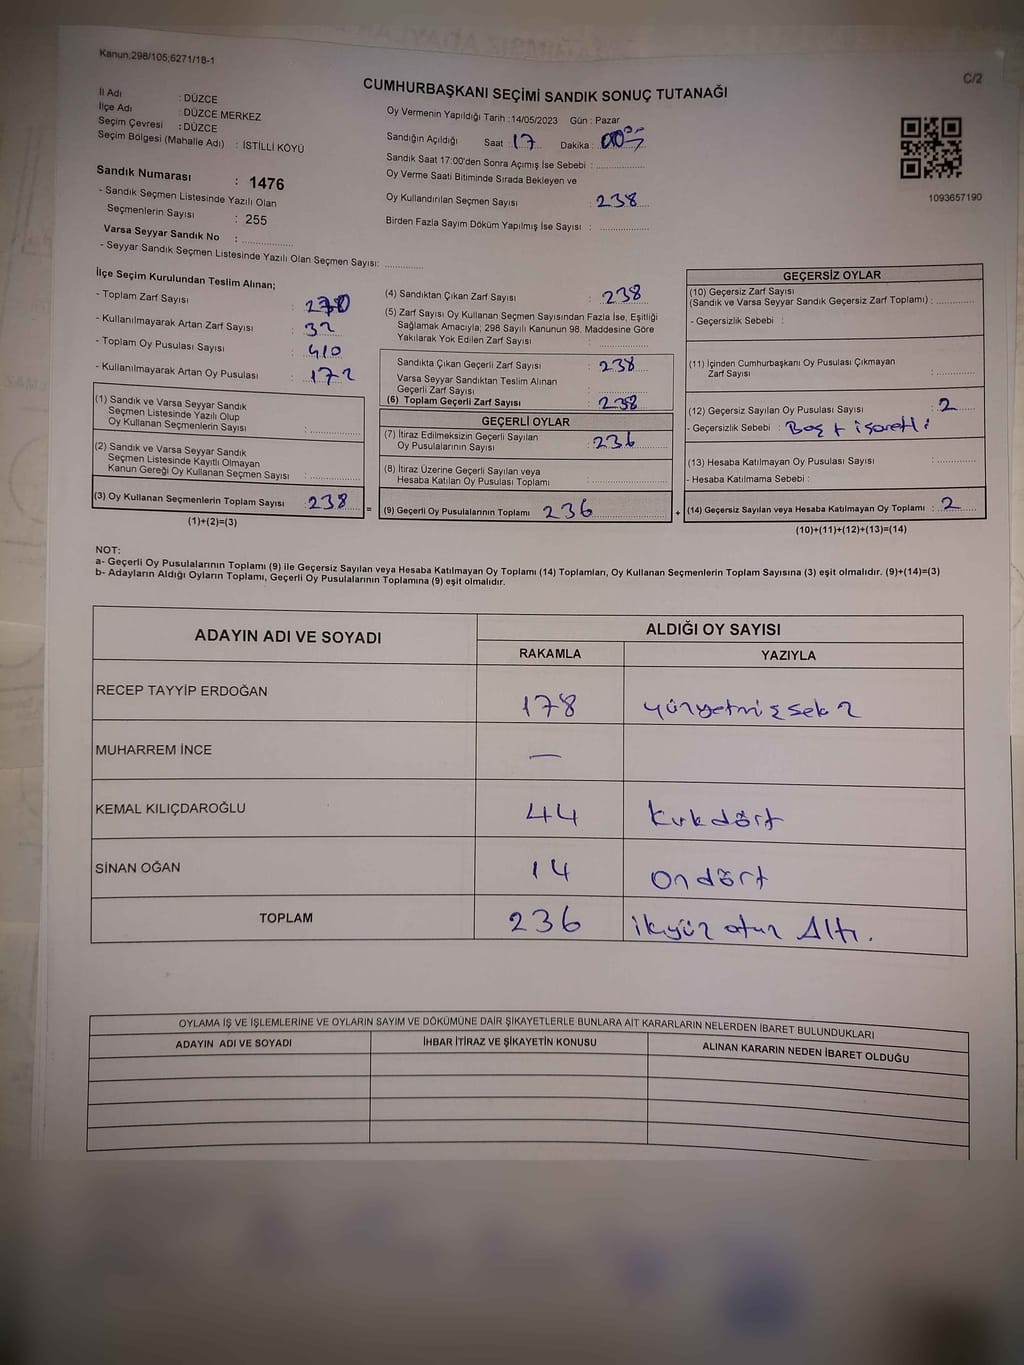 Kanun:298/105;6271/18-1
C/2
CUMHURBAŞKANI SEÇİMİ SANDIK SONUÇ TUTANAĞI
İl Adı : DÜZCE
İlçe Adı : DÜZCE MERKEZ
Seçim Çevresi : DÜZCE
Seçim Bölgesi (Mahalle Adı) : İSTİLLİ KÖYÜ
Sandık Numarası : 1476
- Sandık Seçmen Listesinde Yazılı Olan
Seçmenlerin Sayısı : 255
Varsa Seyyar Sandık No : ................
- Seyyar Sandık Seçmen Listesinde Yazılı Olan Seçmen Sayısı: ............
Oy Vermenin Yapıldığı Tarih :14/05/2023 Gün : Pazar
Sandığın Açıldığı Saat 17 Dakika
Sandık Saat 17:00'den Sonra Açımış İse Sebebi : ................
Oy Verme Saati Bitiminde Sırada Bekleyen ve
Oy Kullandırılan Seçmen Sayısı : 238
Birden Fazla Sayım Döküm Yapılmış İse Sayısı : ................
1093657190
İlçe Seçim Kurulundan Teslim Alınan;
- Toplam Zarf Sayısı : 270
- Kullanılmayarak Artan Zarf Sayısı : 32
- Toplam Oy Pusulası Sayısı : 410
- Kullanılmayarak Artan Oy Pusulası : 172
(1) Sandık ve Varsa Seyyar Sandık
Seçmen Listesinde Yazılı Olup
Oy Kullanan Seçmenlerin Sayısı : ................
(2) Sandık ve Varsa Seyyar Sandık
Seçmen Listesinde Kayıtlı Olmayan
Kanun Gereği Oy Kullanan Seçmen Sayısı : ................
(3) Oy Kullanan Seçmenlerin Toplam Sayısı : 238
(1)+(2)=(3)
(4) Sandıktan Çıkan Zarf Sayısı : 238
(5) Zarf Sayısı Oy Kullanan Seçmen Sayısından Fazla İse, Eşitliği
Sağlamak Amacıyla; 298 Sayılı Kanunun 98. Maddesine Göre
Yakılarak Yok Edilen Zarf Sayısı : ................
Sandıkta Çıkan Geçerli Zarf Sayısı : 238
Varsa Seyyar Sandıktan Teslim Alınan
Geçerli Zarf Sayısı : ................
(6) Toplam Geçerli Zarf Sayısı : 238
=
GEÇERLİ OYLAR
(7) İtiraz Edilmeksizin Geçerli Sayılan
Oy Pusulalarının Sayısı : 236
(8) İtiraz Üzerine Geçerli Sayılan veya
Hesaba Katılan Oy Pusulası Toplamı : ................
(9) Geçerli Oy Pusulalarının Toplamı 236
+
GEÇERSİZ OYLAR
(10) Geçersiz Zarf Sayısı
(Sandık ve Varsa Seyyar Sandık Geçersiz Zarf Toplamı) : ............
- Geçersizlik Sebebi :
(11) İçinden Cumhurbaşkanı Oy Pusulası Çıkmayan
Zarf Sayısı : ............
(12) Geçersiz Sayılan Oy Pusulası Sayısı : 2
- Geçersizlik Sebebi : Boş + işaretli
(13) Hesaba Katılmayan Oy Pusulası Sayısı : ............
- Hesaba Katılmama Sebebi :
(14) Geçersiz Sayılan veya Hesaba Katılmayan Oy Toplamı : 2
(10)+(11)+(12)+(13)=(14)
NOT:
a- Geçerli Oy Pusulalarının Toplamı (9) ile Geçersiz Sayılan veya Hesaba Katılmayan Oy Toplamı (14) Toplamları, Oy Kullanan Seçmenlerin Toplam Sayısına (3) eşit olmalıdır. (9)+(14)=(3)
b- Adayların Aldığı Oyların Toplamı, Geçerli Oy Pusulalarının Toplamına (9) eşit olmalıdır.
ADAYIN ADI VE SOYADI
ALDIĞI OY SAYISI
RAKAMLA YAZIYLA
RECEP TAYYİP ERDOĞAN 178 yüzyetmişsekz
MUHARREM İNCE —
KEMAL KILIÇDAROĞLU 44 Kırkdört
SİNAN OĞAN 14 ondört
TOPLAM 236 ikiyüz otuz Altı.
OYLAMA İŞ VE İŞLEMLERİNE VE OYLARIN SAYIM VE DÖKÜMÜNE DAİR ŞİKAYETLERLE BUNLARA AİT KARARLARIN NELERDEN İBARET BULUNDUKLARI
ADAYIN ADI VE SOYADI İHBAR İTİRAZ VE ŞİKAYETİN KONUSU ALINAN KARARIN NEDEN İBARET OLDUĞU